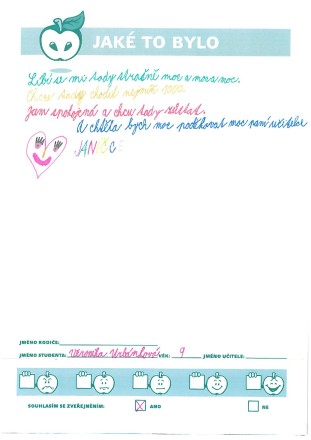 JAKÉ TO BYLO
Líbí se mi tady strašně moc a moc a moc.
Chci tady chodit nejmíň
Jsem spokojená a chci tady zůstat.
A chtěla bych moc poděkovat moc paní učitelce
JANIČCE
JMÉNO RODIČE:
JMÉNO STUDENTA: Veronika Urbánková VĚK: 9 JMÉNO UČITELE:
SOUHLASÍM SE ZVEŘEJNĚNÍM: X ANO NE